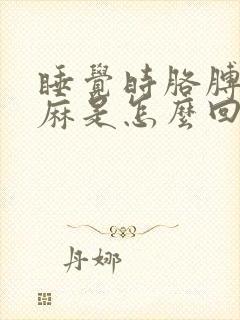 睡覺時胳膊
麻是怎麼回
丹娜